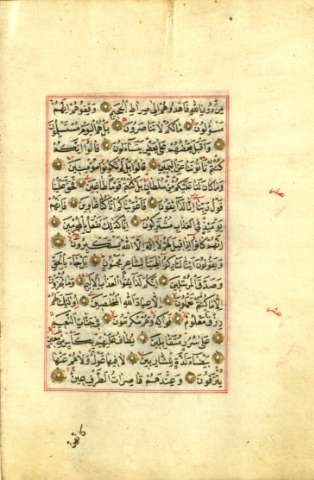 من دون الله فاهدوهم الى صراط الجحيم وقفوهم انهم
مسؤلون مالكم لا تناصرون بل هم اليوم مستسلمون
واقبل بعضهم على بعض يتسائلون قالوا انكم
كنتم تاتوننا عن اليمين قالوا بل لم تكونوا مؤمنين
وما كان لنا عليكم من سلطان بل كنتم قوما طاغين فحق علينا
قول ربنا انا لذائقون فاغويناكم انا كنا غاوين فانهم
يومئذ في العذاب مشتركون انا كذلك نفعل بالمجرمين
انهم كانوا اذا قيل لهم لا اله الا الله يستكبرون
ويقولون ائنا لتاركوا الهتنا لشاعر مجنون بل جاء بالحق
وصدق المرسلين انكم لذائقوا العذاب الاليم وما تجزون
الا ما كنتم تعملون الا عباد الله المخلصين اولئك لهم
رزق معلوم فواكه وهم مكرمون في جنات النعيم
على سرر متقابلين يطاف عليهم بكاس من معين
بيضاء لذة للشاربين لا فيها غول ولا هم عنها
ينزفون وعندهم قاصرات الطرف عين
كانهن